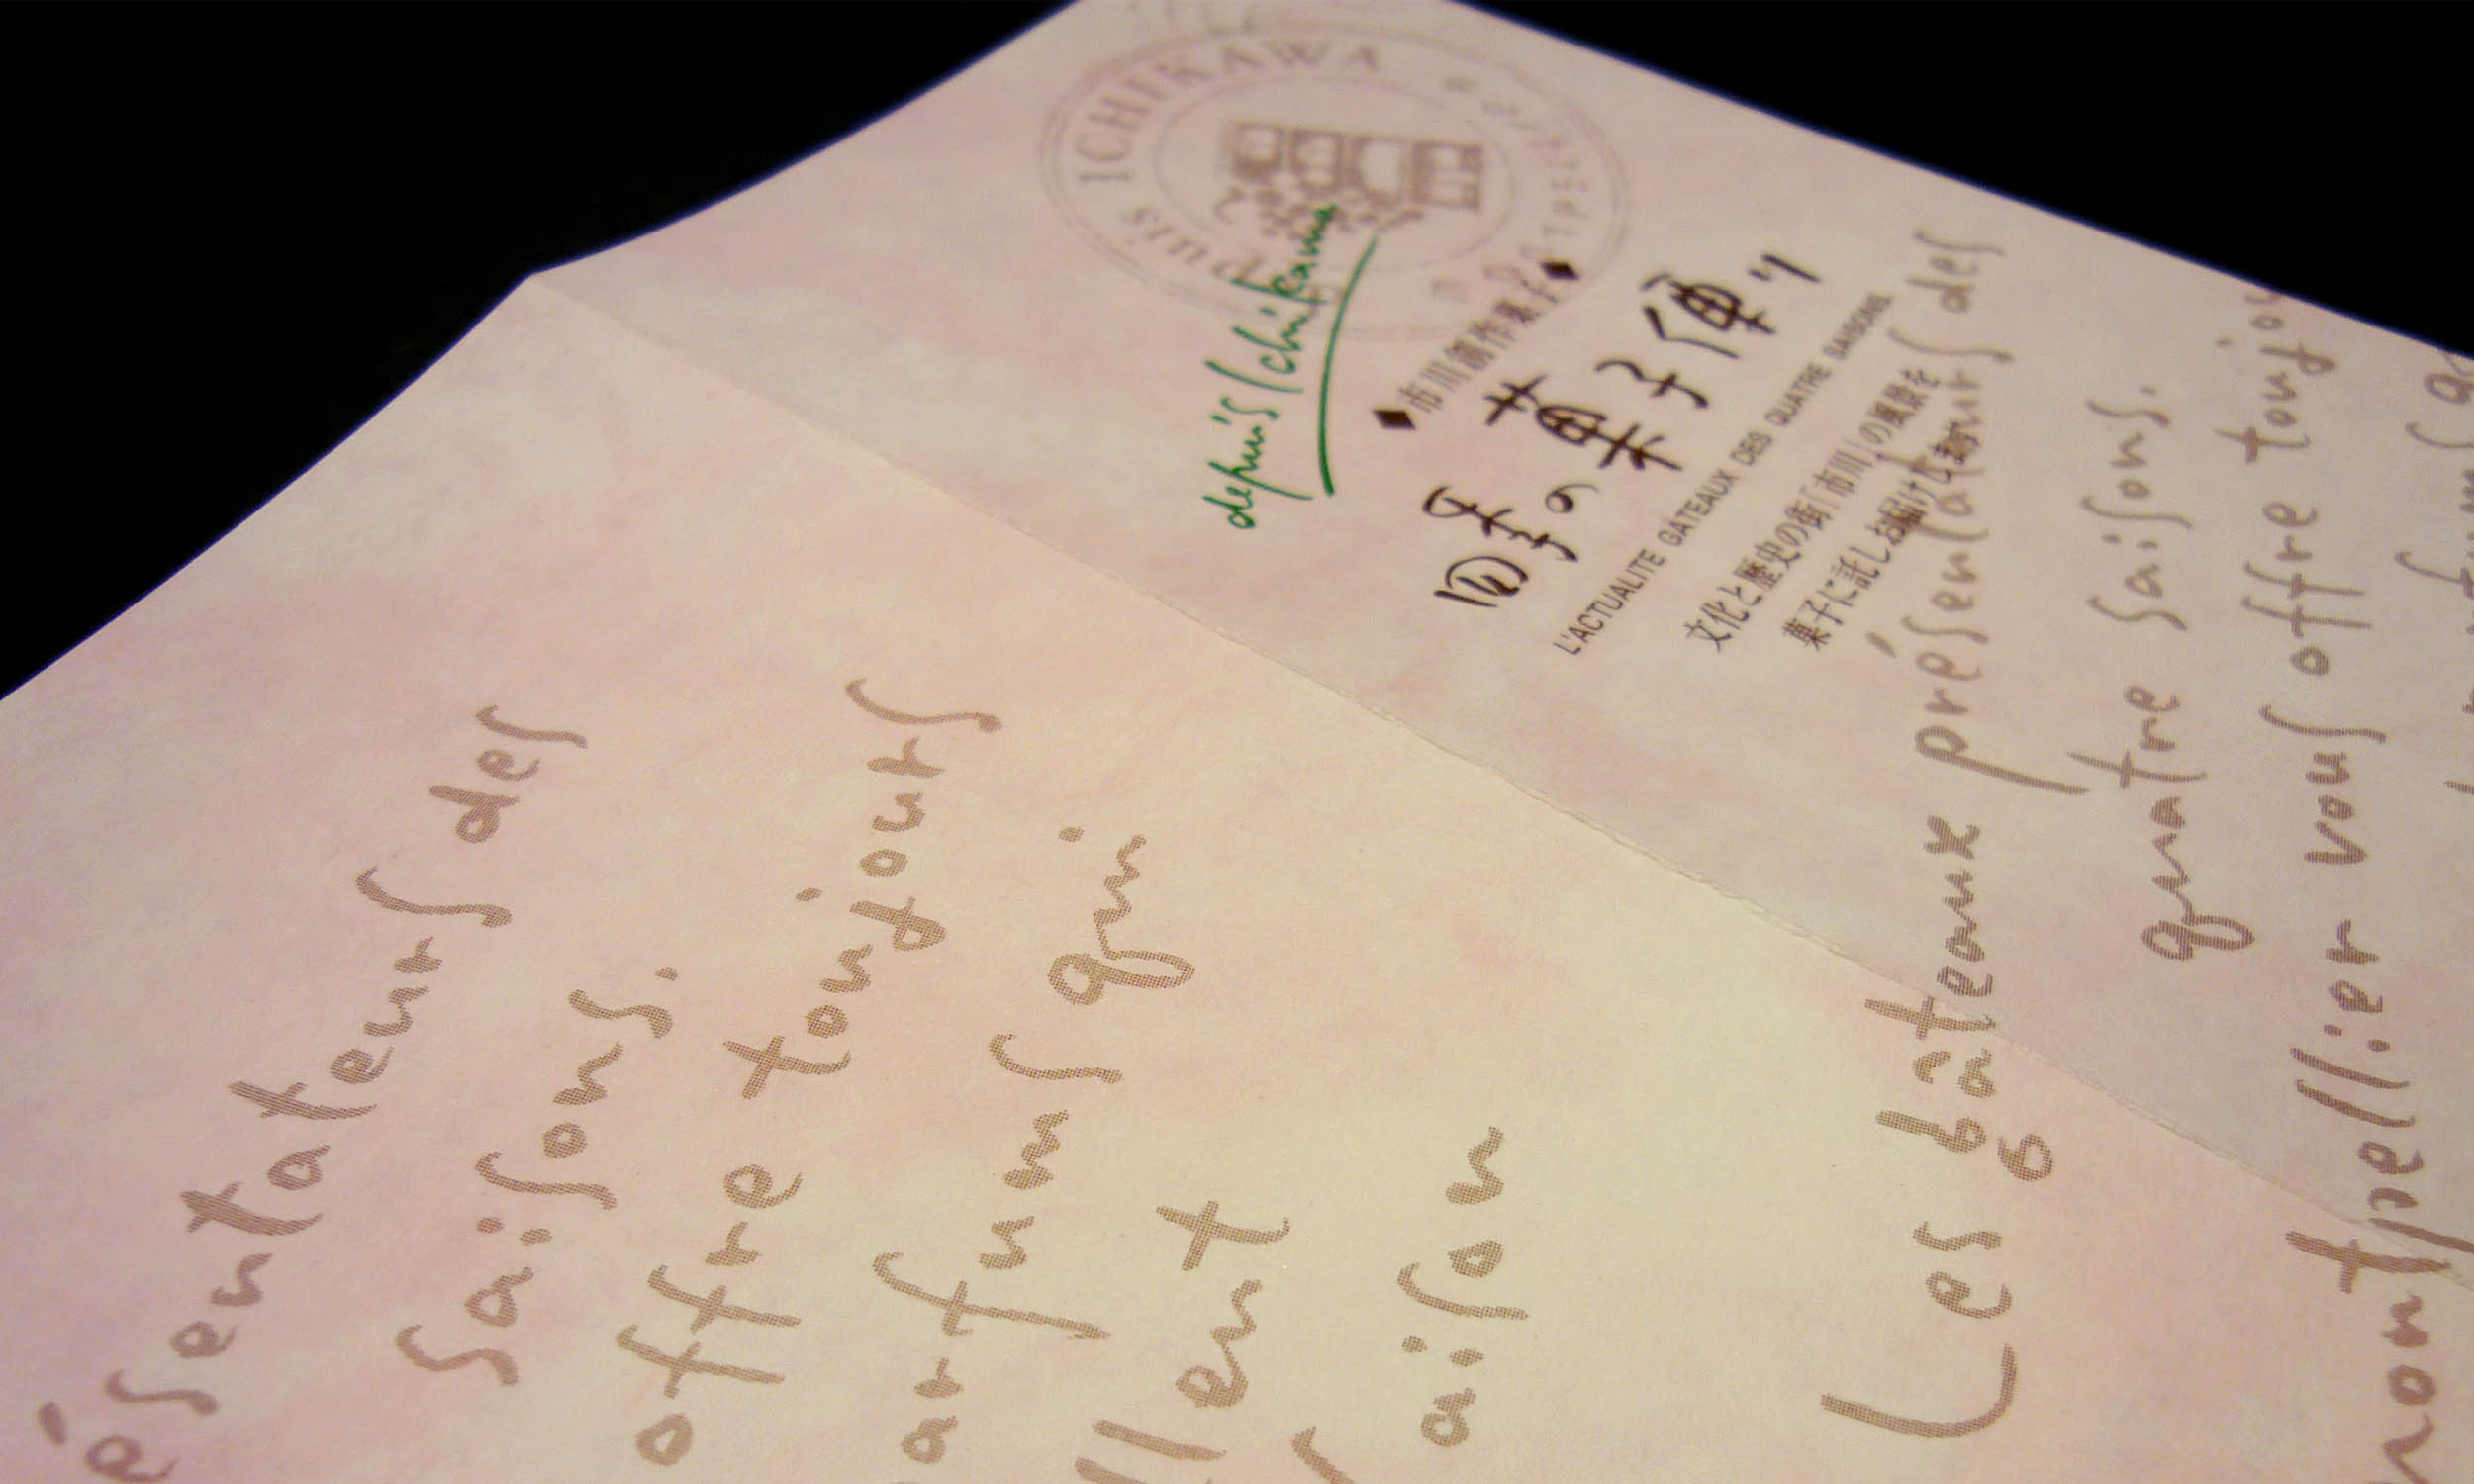 ICHIKAWA
depuis Ichikawa
◆市川創作菓子◆
四季の菓子便り
L'ACTUALITE GÂTEAUX DES QUATRE SAISONS
文化と歴史の街「市川」の風景を
菓子に託しお届けします
Les gâteaux présentateurs des
quatre saisons.
montpellier vous offre toujou
ésentateurs des
saisons.
offre toujours
arfums qui
llent
aison